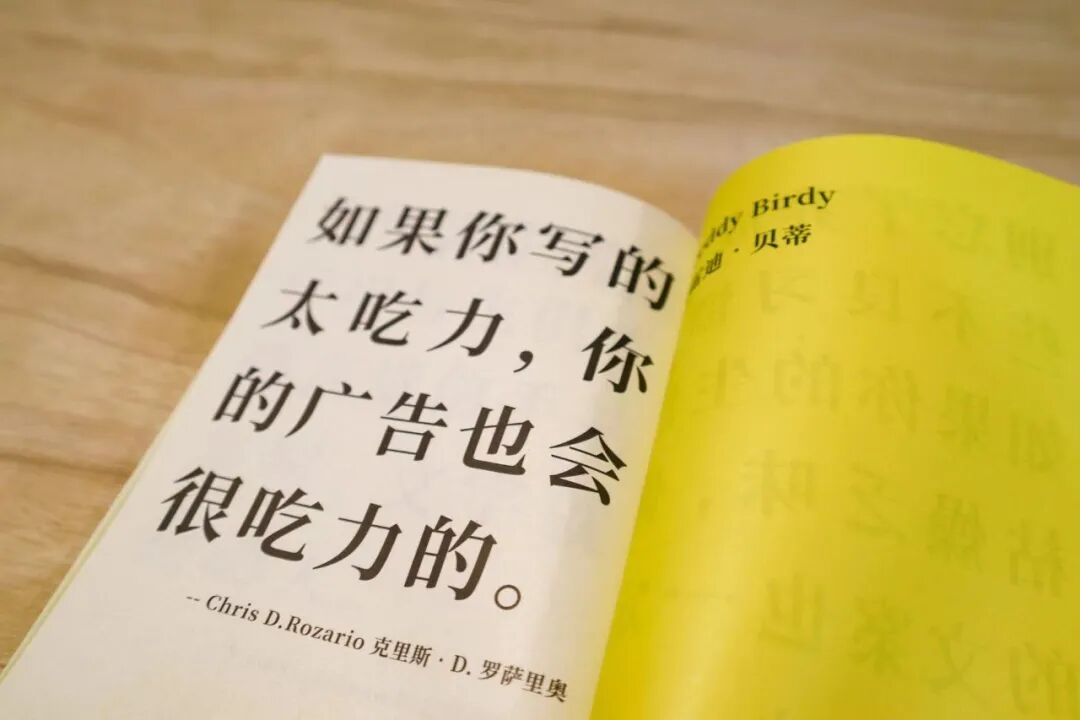 如果你写的
太吃力，你
的广告也会
很吃力的。
-- Chris D.Rozario 克里斯·D. 罗萨里奥
Birdy
迪·贝蒂